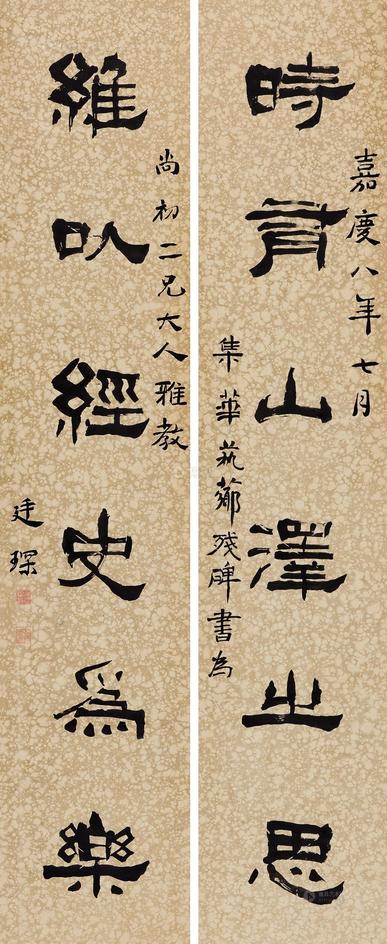 嘉慶八年七月
時有山澤之思
集華薌殘碑書為
尚初二兄大人雅教
維以經史爲樂
廷琛